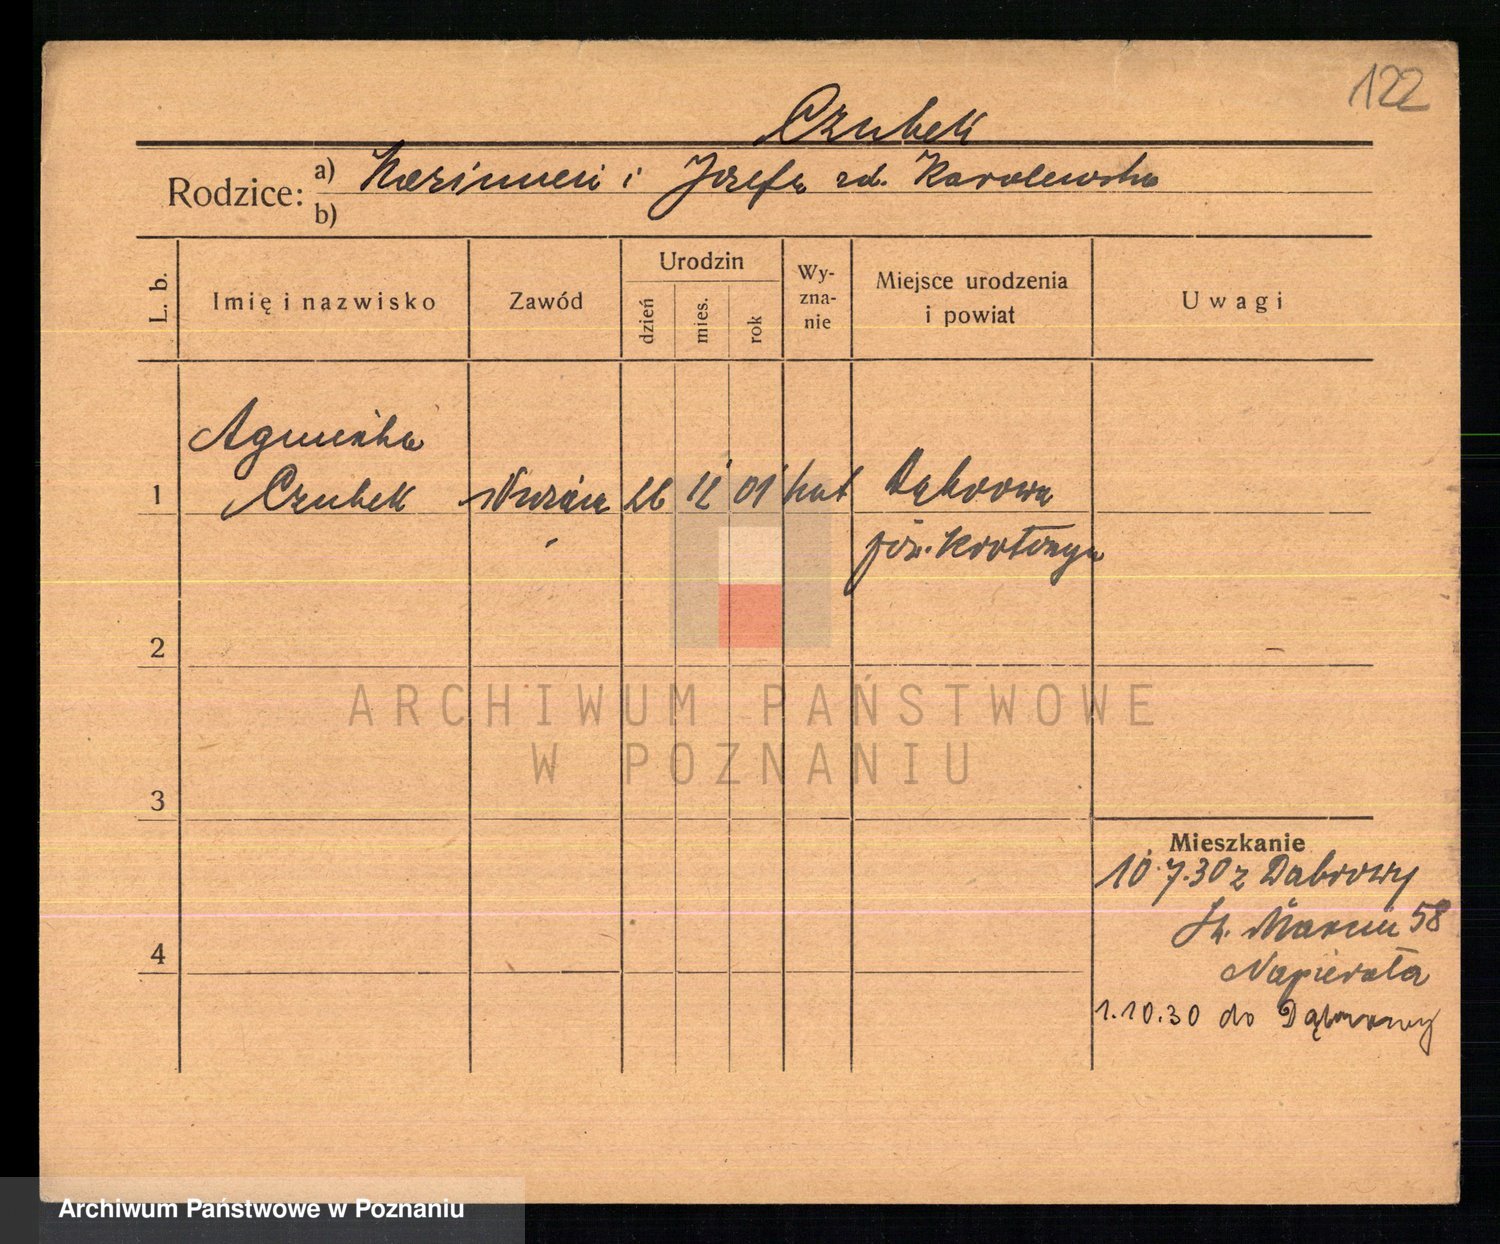 122
Czubek
Rodzice: a) Kazimierz i Józefa zd. Karolewska
b)
L. b.
Imię i nazwisko
Zawód
Urodzin
dzień
mies.
rok
Wy-
zna-
nie
Miejsce urodzenia
i powiat
Uwagi
Agnieszka
1 Czubek 26 12 01 kat Dąbrowa
pow. Krotoszyn
2
ARCHIWUM PAŃSTWOWE
W POZNANIU
3
Mieszkanie
10.7.30 z Dąbrowy
Św. Marcin 58
4
Napierała
1.10.30 do Dąbrowy
Archiwum Państwowe w Poznaniu